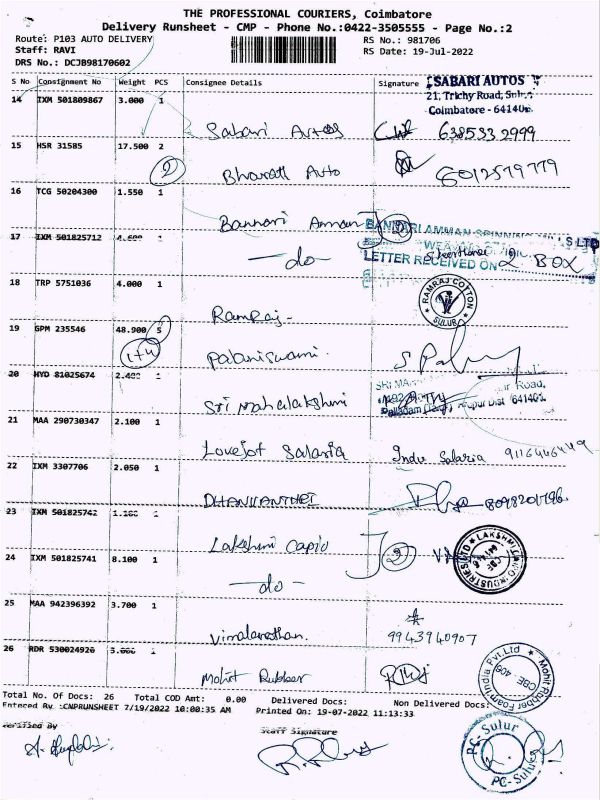 THE PROFESSIONAL COURIERS, Coimbatore
Delivery Runsheet - CMP - Phone No.:0422-3505555 - Page No.:2
Route: P103 AUTO DELIVERY RS No.: 981706
Staff: RAVI RS Date: 19-Jul-2022
DRS No.: DCJB98170602
S No Consignment No Weight PCS Consignee Details Signature
SABARI AUTOS
21, Trichy Road, Sulur
Coimbatore - 641402
14 IXM 501809867 3.000 1
Sabari Autos 638533 2999
15 HSR 31585 17.500 2
2 Bharath Auto
16 TCG 50204300 1.550 1
Bannari Amman 2
17 IXM 501825712 1
LETTER RECEIVED ON
do 2 BOX
18 TRP 5751036 4.000 1
RAMRAJ COTTON
SULUR
Ramraj
19 GPM 235546 48.900 5
1+4 Palaniswami. S Pal
20 HYD 81025674 2.400 1
Sri Mahalakshmi
21 MAA 290730347 2.100 1
Lovejot Salaria Indu Salaria 9116446449
22 IXM 3307706 2.050 1
DHANVANTHRI 8098201796.
23 IXM 501825742 1.100 1
Lakshmi Capio 2
24 IXM 501825741 8.100 1
do
25 MAA 942396392 3.700 1
Vimalanathan. 9943940907
26 RDR 530024926 3.000 1
Mohit Rubber
Mohit Rubber Foam India Pvt.Ltd
CBE 402
Total No. Of Docs: 26 Total COD Amt: 0.00 Delivered Docs: Non Delivered Docs:
Entered By :CMPRUNSHEET 7/19/2022 10:08:35 AM Printed On: 19-07-2022 11:13:33
Verified By Staff Signature
PC-Sulur
PC-Sulur